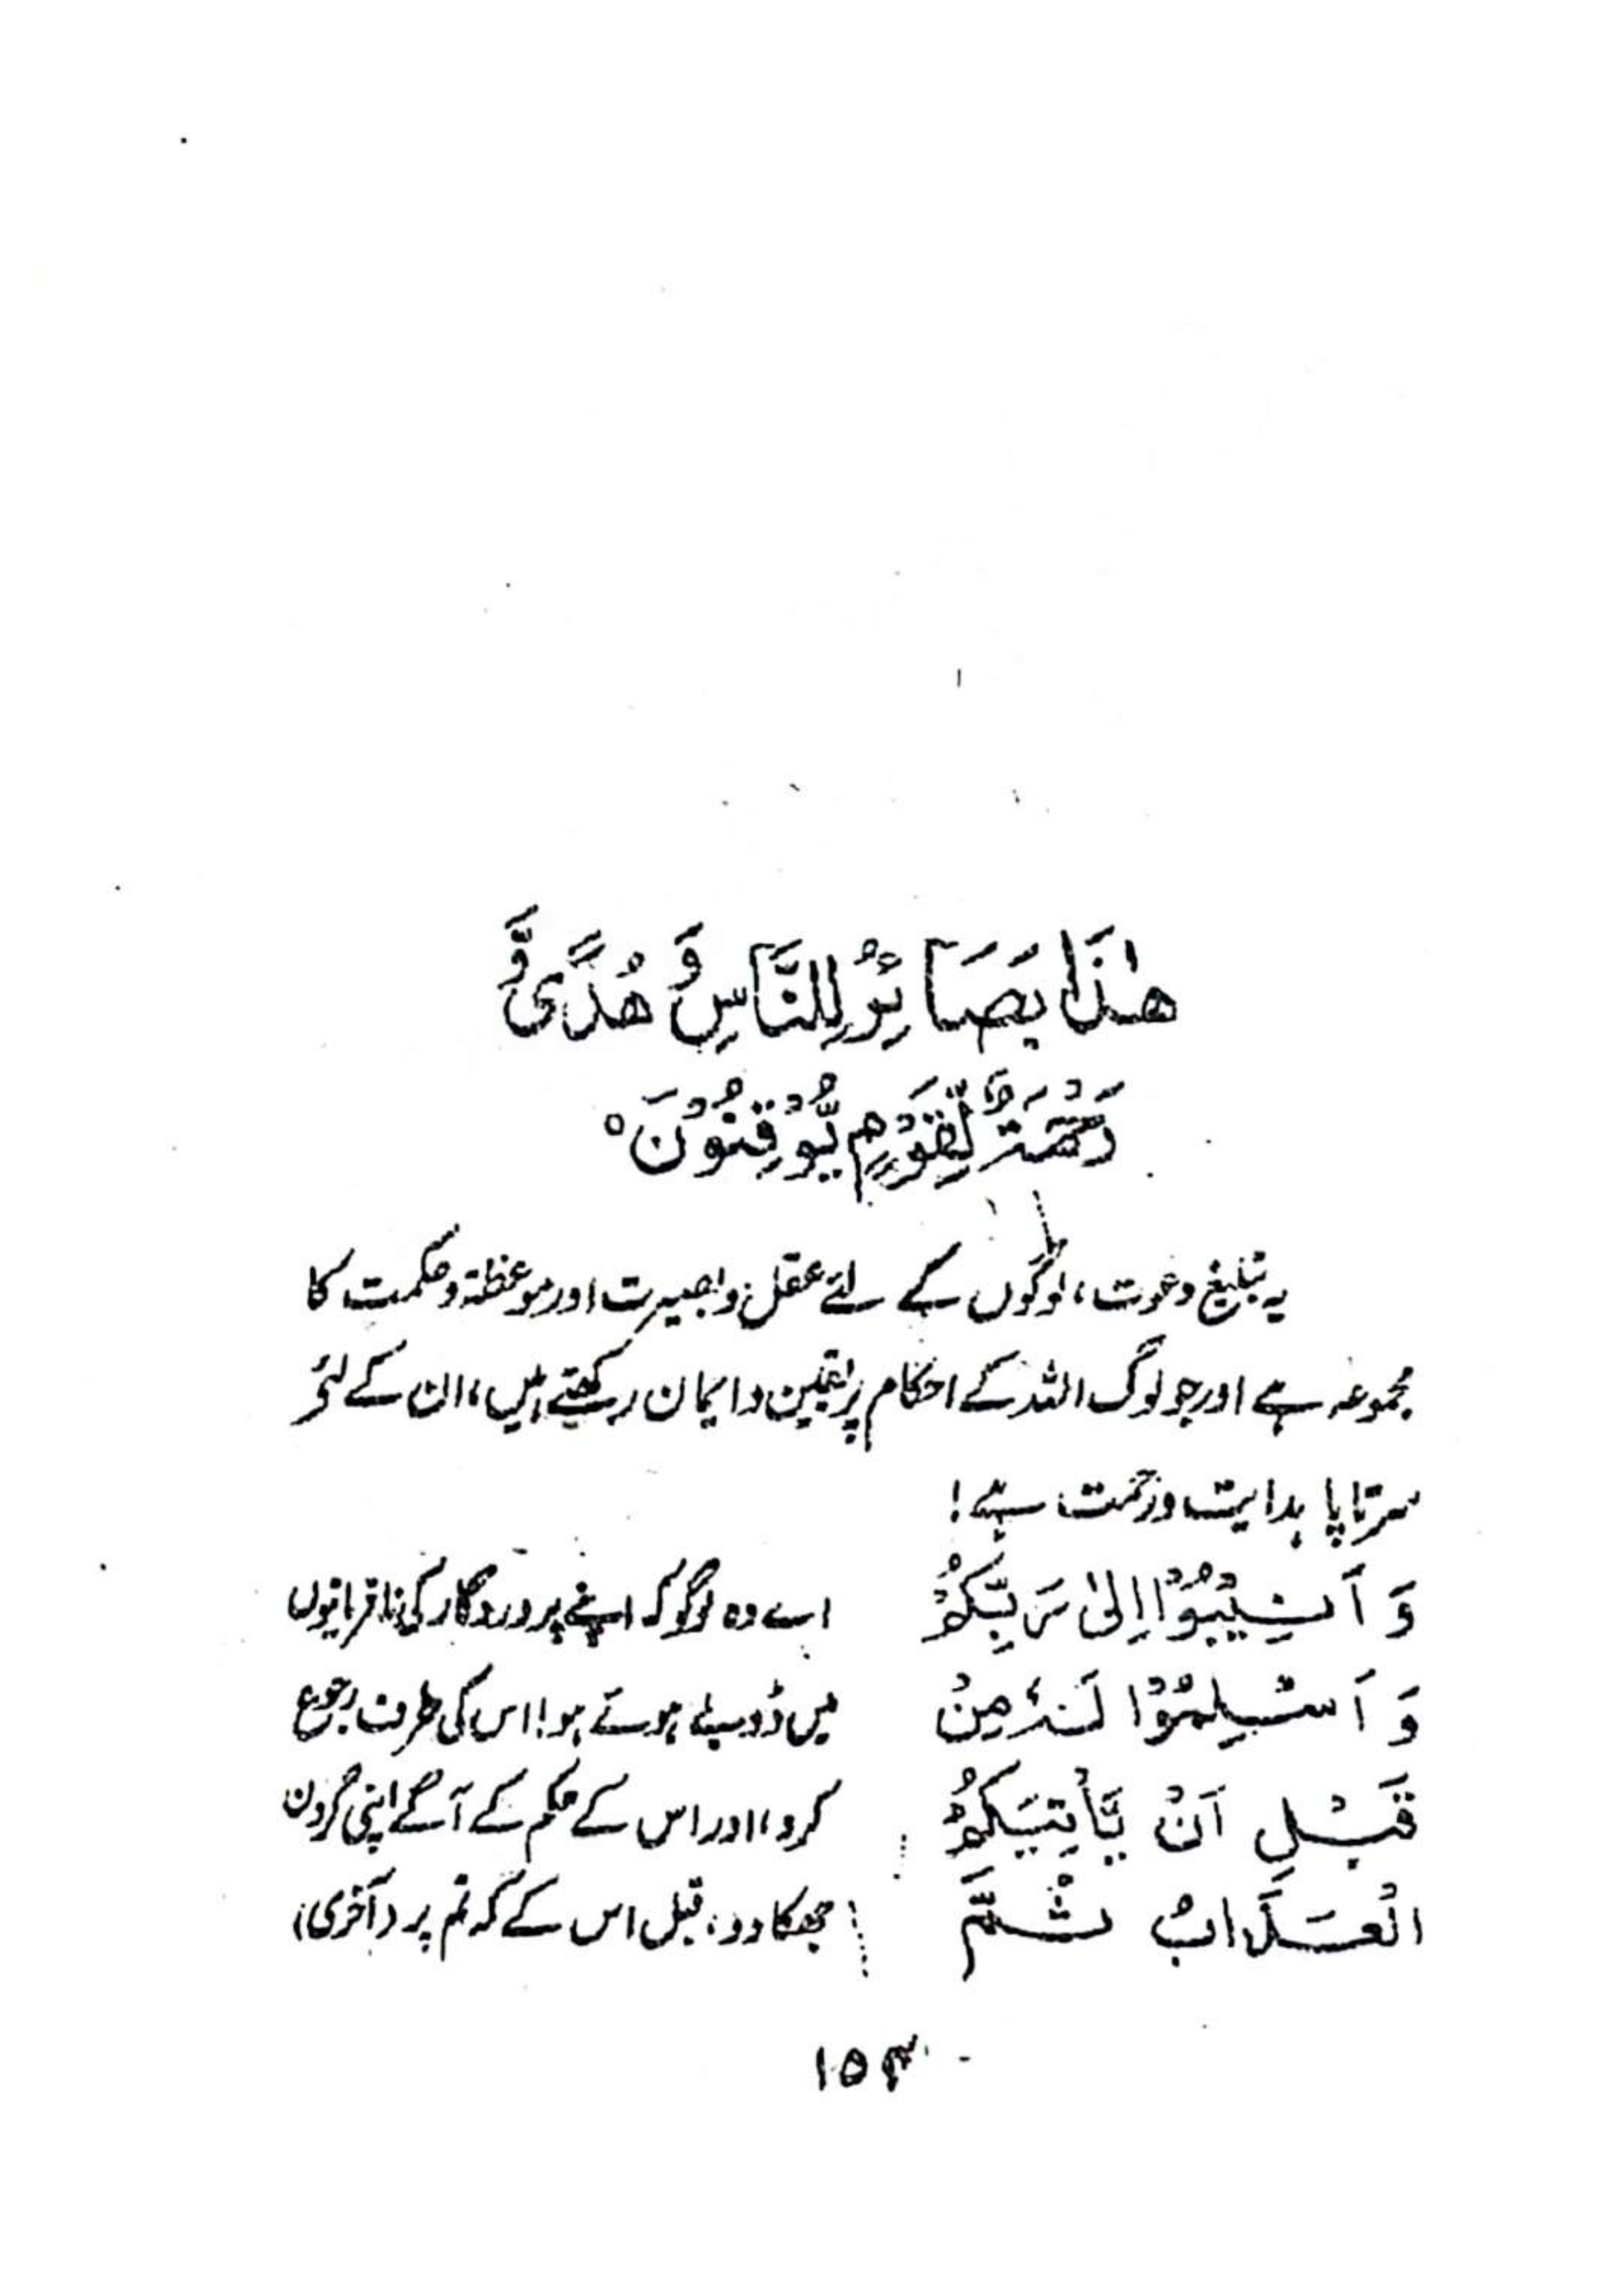 هٰذَا بَصَآئِرُ لِلنَّاسِ وَ هُدًى وَّ
رَحْمَةٌ لِّقَوْمٍ يُّوْقِنُوْنَ ۰
یہ تبلیغ دعوت، لوگوں کے لئے عقل و بصیرت اور موعظۃ و حکمت کا
مجموعہ ہے اور جو لوگ اللہ کے احکام پر یقین و ایمان رکھتے ہیں، ان کے لئے
سرتاپا ہدایت و رحمت ہے!
وَ اَنِيْبُوْا اِلىٰ رَبِّكُمْ
وَ اَسْلِمُوْا لَهٗ مِنْ
قَبْلِ اَنْ يَّأْتِيَكُمُ
الْعَذَابُ ثُمَّ
اے وہ لوگو کہ اپنے پروردگار کی نافرمانیوں
میں ڈوبے ہوئے ہو! اس کی طرف رجوع
کرو، اور اس کے حکم کے آگے اپنی گردن
جھکا دو، قبل اس کے کہ تم پر (آخری)
۱۵۳